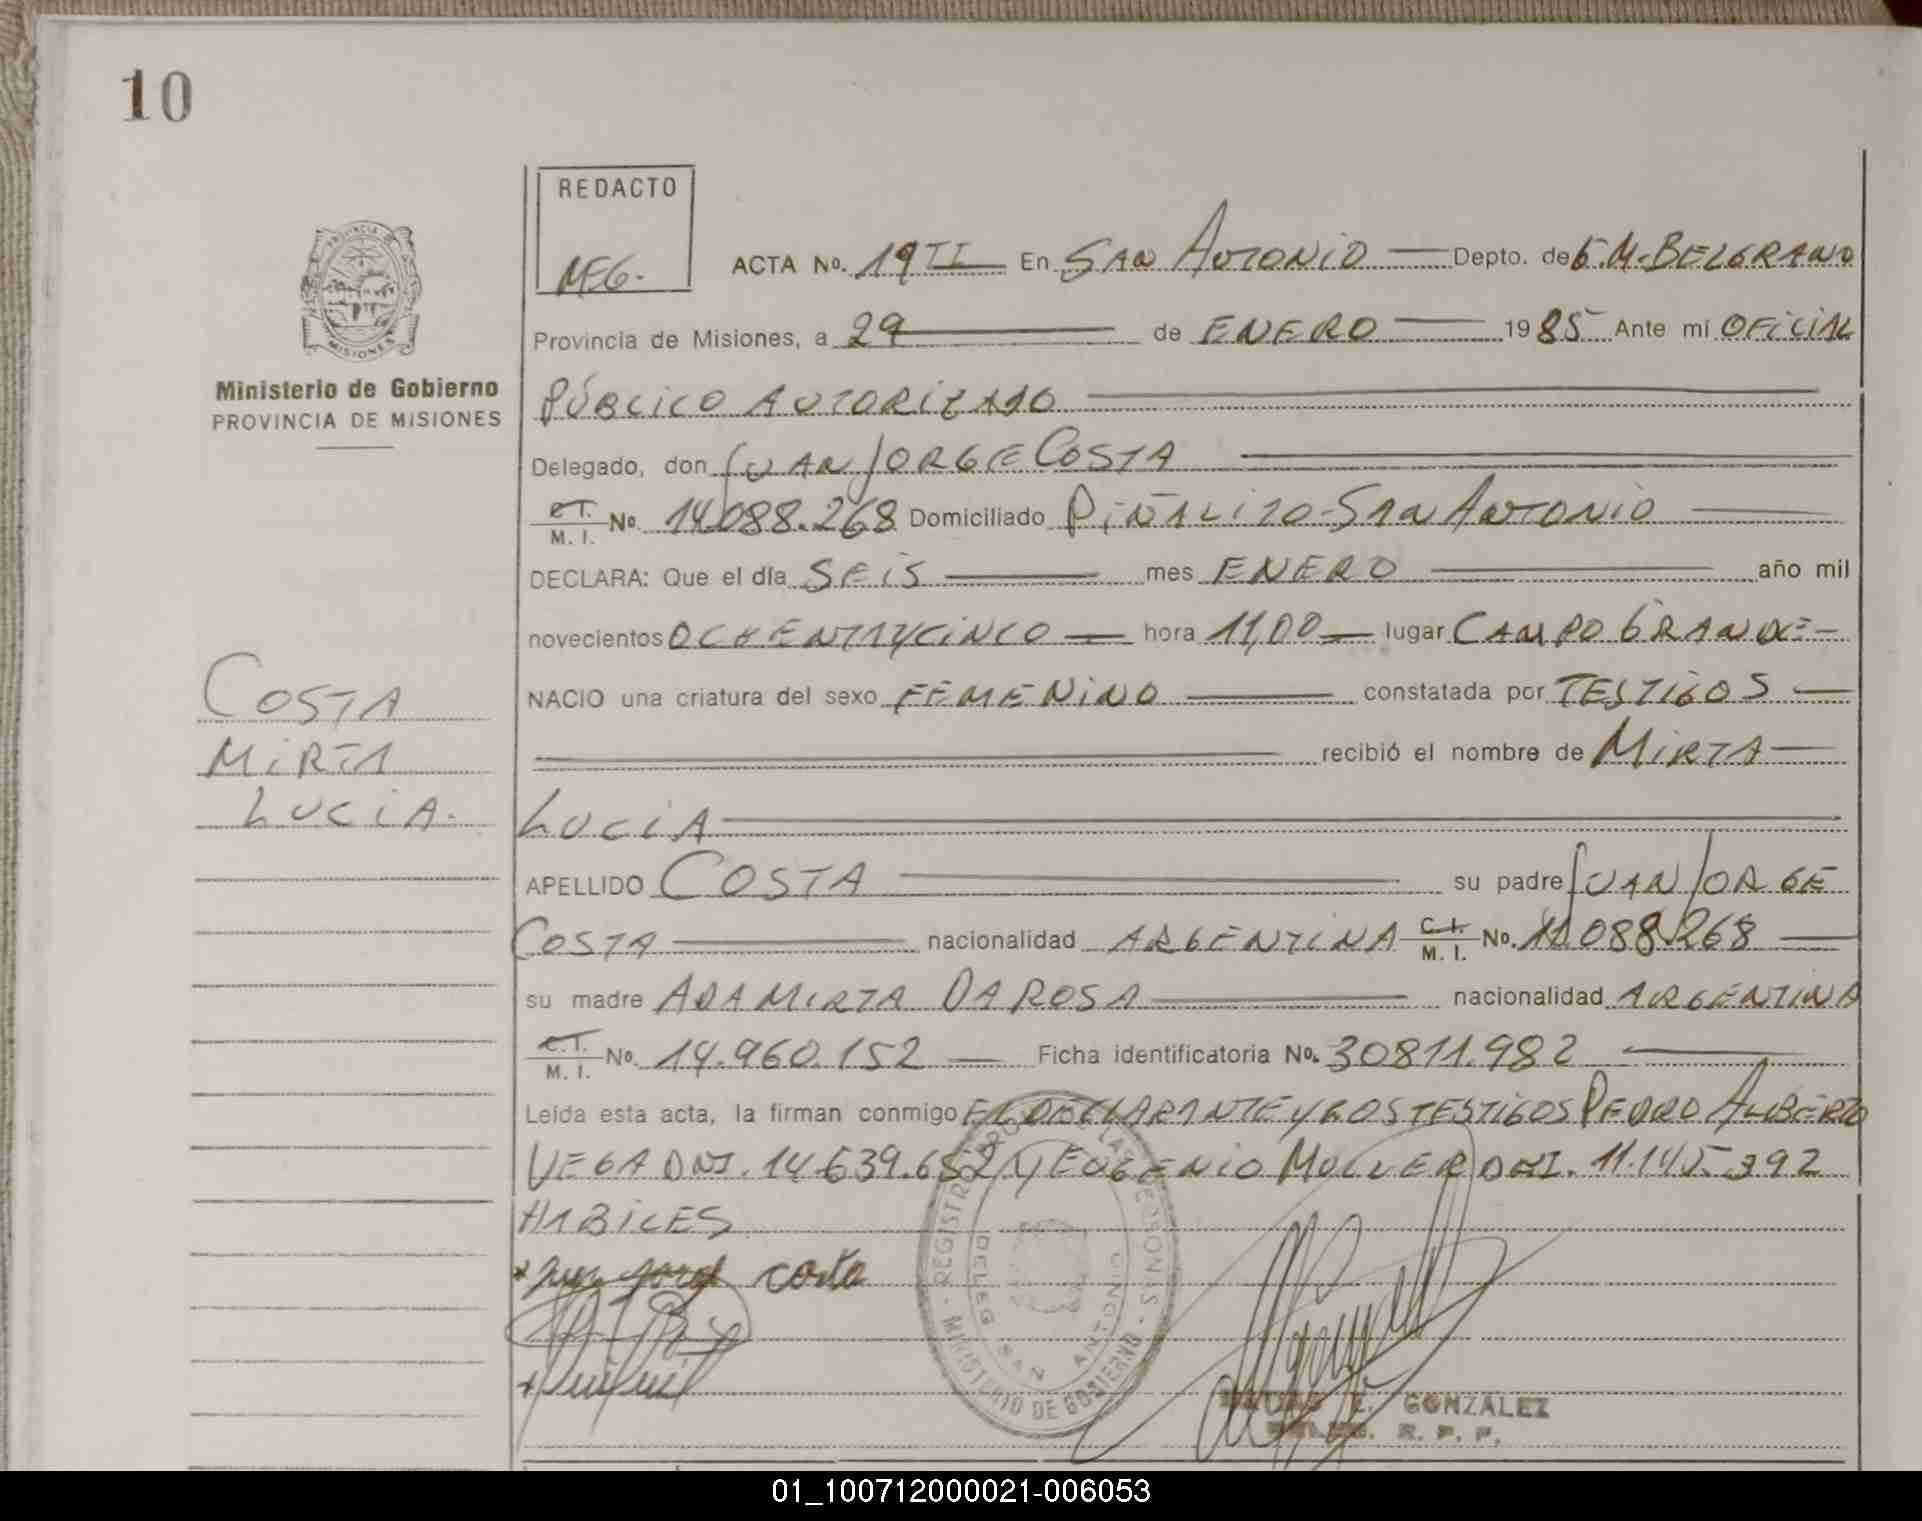 10
REDACTO
MEG.
PROVINCIA DE
MISIONES
Ministerio de Gobierno
PROVINCIA DE MISIONES
ACTA No. 19 TI En SAN ANTONIO Depto. de G.M. BELGRANO
Provincia de Misiones, a 29 de ENERO 1985 Ante mí OFICIAL
PÚBLICO AUTORIZADO
Delegado, don JUAN JORGE COSTA
C.I. M. I. No. 14.088.268 Domiciliado PIÑALITO-SAN ANTONIO
DECLARA: Que el día SEIS mes ENERO año mil
novecientos OCHENTA Y CINCO hora 11,00 lugar CAMPO GRANDE
NACIO una criatura del sexo FEMENINO constatada por TESTIGOS
recibió el nombre de MIRTA
LUCIA
APELLIDO COSTA su padre JUAN JORGE
COSTA nacionalidad ARGENTINA C.I. M. I. No. 088.268
su madre ADA MIRTA DA ROSA nacionalidad ARGENTINA
C.I. M. I. No. 14.960.152 Ficha identificatoria No. 30811.982
Leída esta acta, la firman conmigo EL DECLARANTE Y LOS TESTIGOS PEDRO ALBERTO
VEGA DNI. 14.639.652 Y EUGENIO MULLER DNI. 11.145.392
HABILES
COSTA
MIRTA
LUCIA.
Juan Jorge Costa
REGISTRO LAS PERSONAS - MINISTERIO DE GOBIERNO
DELEG SAN ANTONIO
GONZALEZ
R. P. P.
01_100712000021-006053